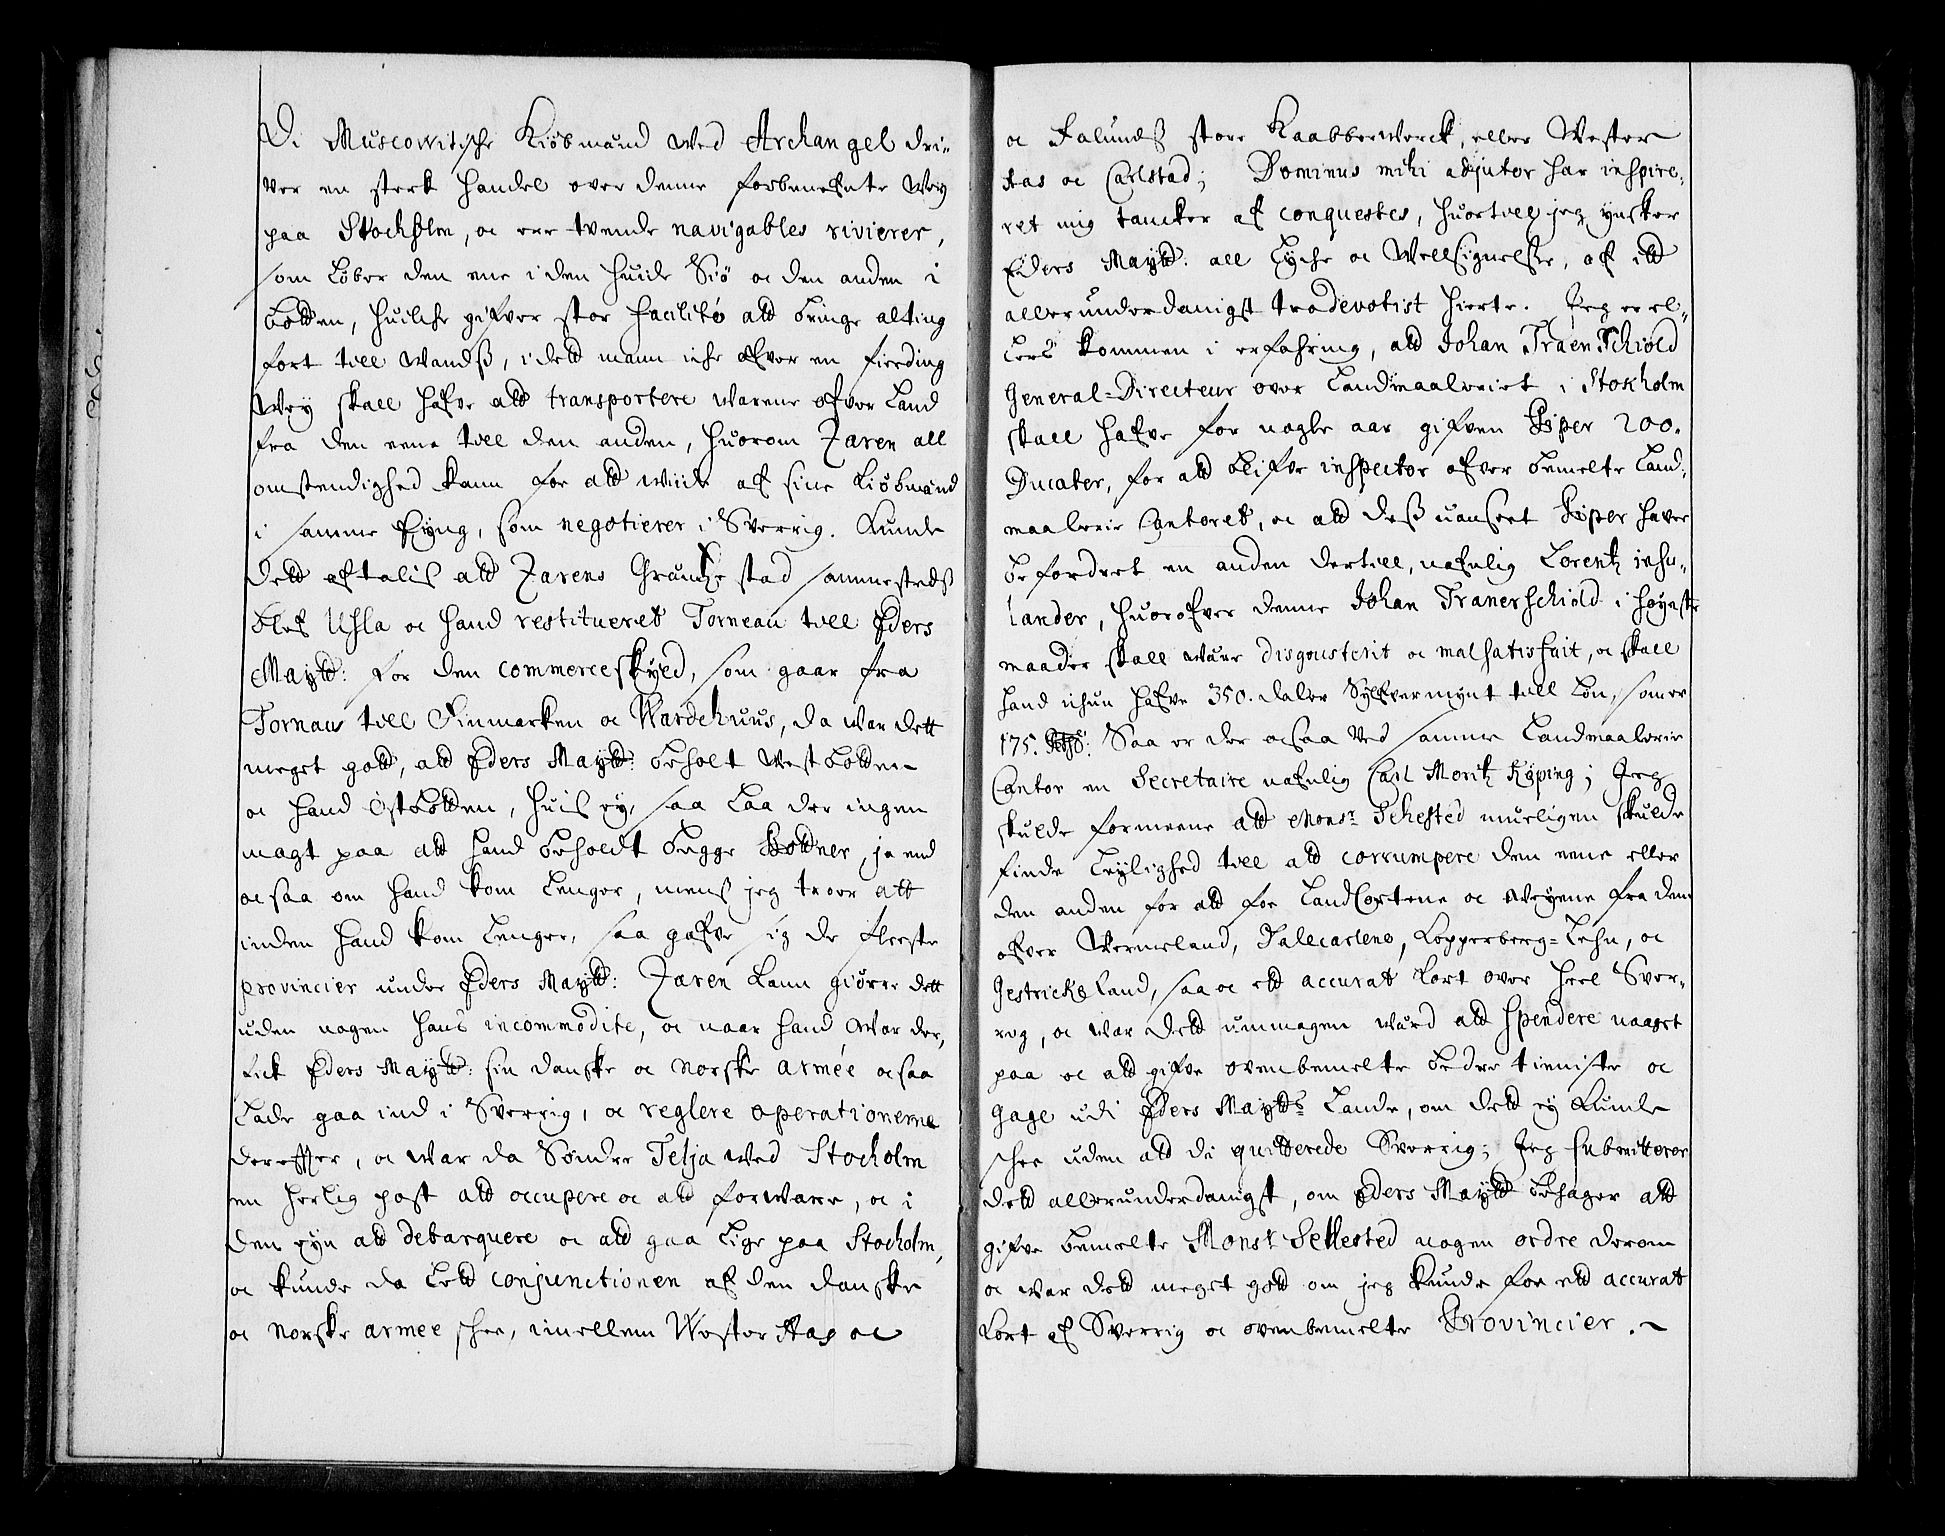 Di Muscowitische Kiöbmænd ved Archangel dri-
ver en sterk handel over denne forbenefnte Wey
paa Stockholm, oc ere tvende navigables rivierer,
som löber den ene i den huide Siö oc den anden i
Botten, huilche gifver stor facilité att bringe alting
fort till Wands, i dett mann iche ofver en fierding
Wey skall hafve att transportere warene ofver Land
fra den eene till den anden, huorom Zaren all
omstendighed kann for att wiide af sine Kiöbmænd
i samme Egng, som negotierer i Sverrig. Kunde
dett aftalis att Zarens Gräntze stad sammesteds
blef Uhla oc hand restitueret Torneau till Eders
Maytt: for den commerce skyld, som gaar fra
Tornau till Finmarken oc Wardehuus, da war dett
meget gott, att Eders Maytt: beholt West botten
oc hand Ostbotten, huis ey, saa laa der ingen
magt paa att hand beholdt begge Bottner, ja end
ocsaa om hand kom lenger, mens jeg troer att
inden hand kom lenger, saa gafve sig de fleeste
provincier under Eders Maytt: Zaren kann giörre dett
uden nogen hans incommodite, oc naar hand war der,
fick Eders Maytt: sin danske oc norske armée ocsaa
lade gaa ind i Sverrig, oc reglere operationerne
dereffter, oc war da Sönder Telja wed Stocholm
en herlig post att occupere oc att forware, oc i
den eyn att debarquere oc att gaa lige paa Stocholm,
oc kunde da lett conjunctionen af den danske
oc norske armee schee, imellem Wester Aas oc
oc Falunds store Kaabberwerck, eller Wester
Aas oc Carlstad; Dominus mihi adjutor har inspire-
ret mig tancker af conquestes, huortill jeg ynsker
Eders Maytt: all lyche oc Wellsignelsse, af ett
allerunderdanigst tro devotist hierte. Jeg er el-
lers kommen i erfahring, att Johan Traen Schiold
General-Directeur over Landmaaleriet i Stokholm
skall hafve for nogle aar gifven Piper 200.
Ducater, for att blifve inspector ofver bemelte Land-
maalerie Contoret, oc att dess uanseet Piper haver
befordret en anden dertill, nafnlig Lorentz inhu-
lander, huorofver denne Johan Tranerschiold i höyeste
maader skall være disgousterit oc malsatisfait, oc skall
hand ichun hafve 350. daler Sylfvermynt till lön, som er
175. Saa er der ocsaa ved samme Landmaalerie
Contor en Secretaire nafnlig Carl Moritz Köping; Jeg
skulde formeene att Monsr Sehested mueligen skulde
finde leylighed till att corrumpere den eene eller
den anden for att foe Land Cortene oc Weyene fra dem
ofver Wermeland, Dalecarlene, Kopperberg-Lehn, oc
Gestricke land, saa oc ett accurat kort over heel Sver-
rig, oc war dett ummagen wærd att spendere naaget
paa oc att gifve ovenbemelte bedre tieniste oc
gage udi Eders Maytts lande, om dett ey kunde
schee uden att di quitterede Sverrig; Jeg submitterer
dett allerunderdanigst, om Eders Maytt behager att
gifve bemelte Monsr Sehested nogen ordre derom
oc war dett meget gott om jeg kunde foe ett accurat
kort af Sverrig oc ovenbemelte Provincier.